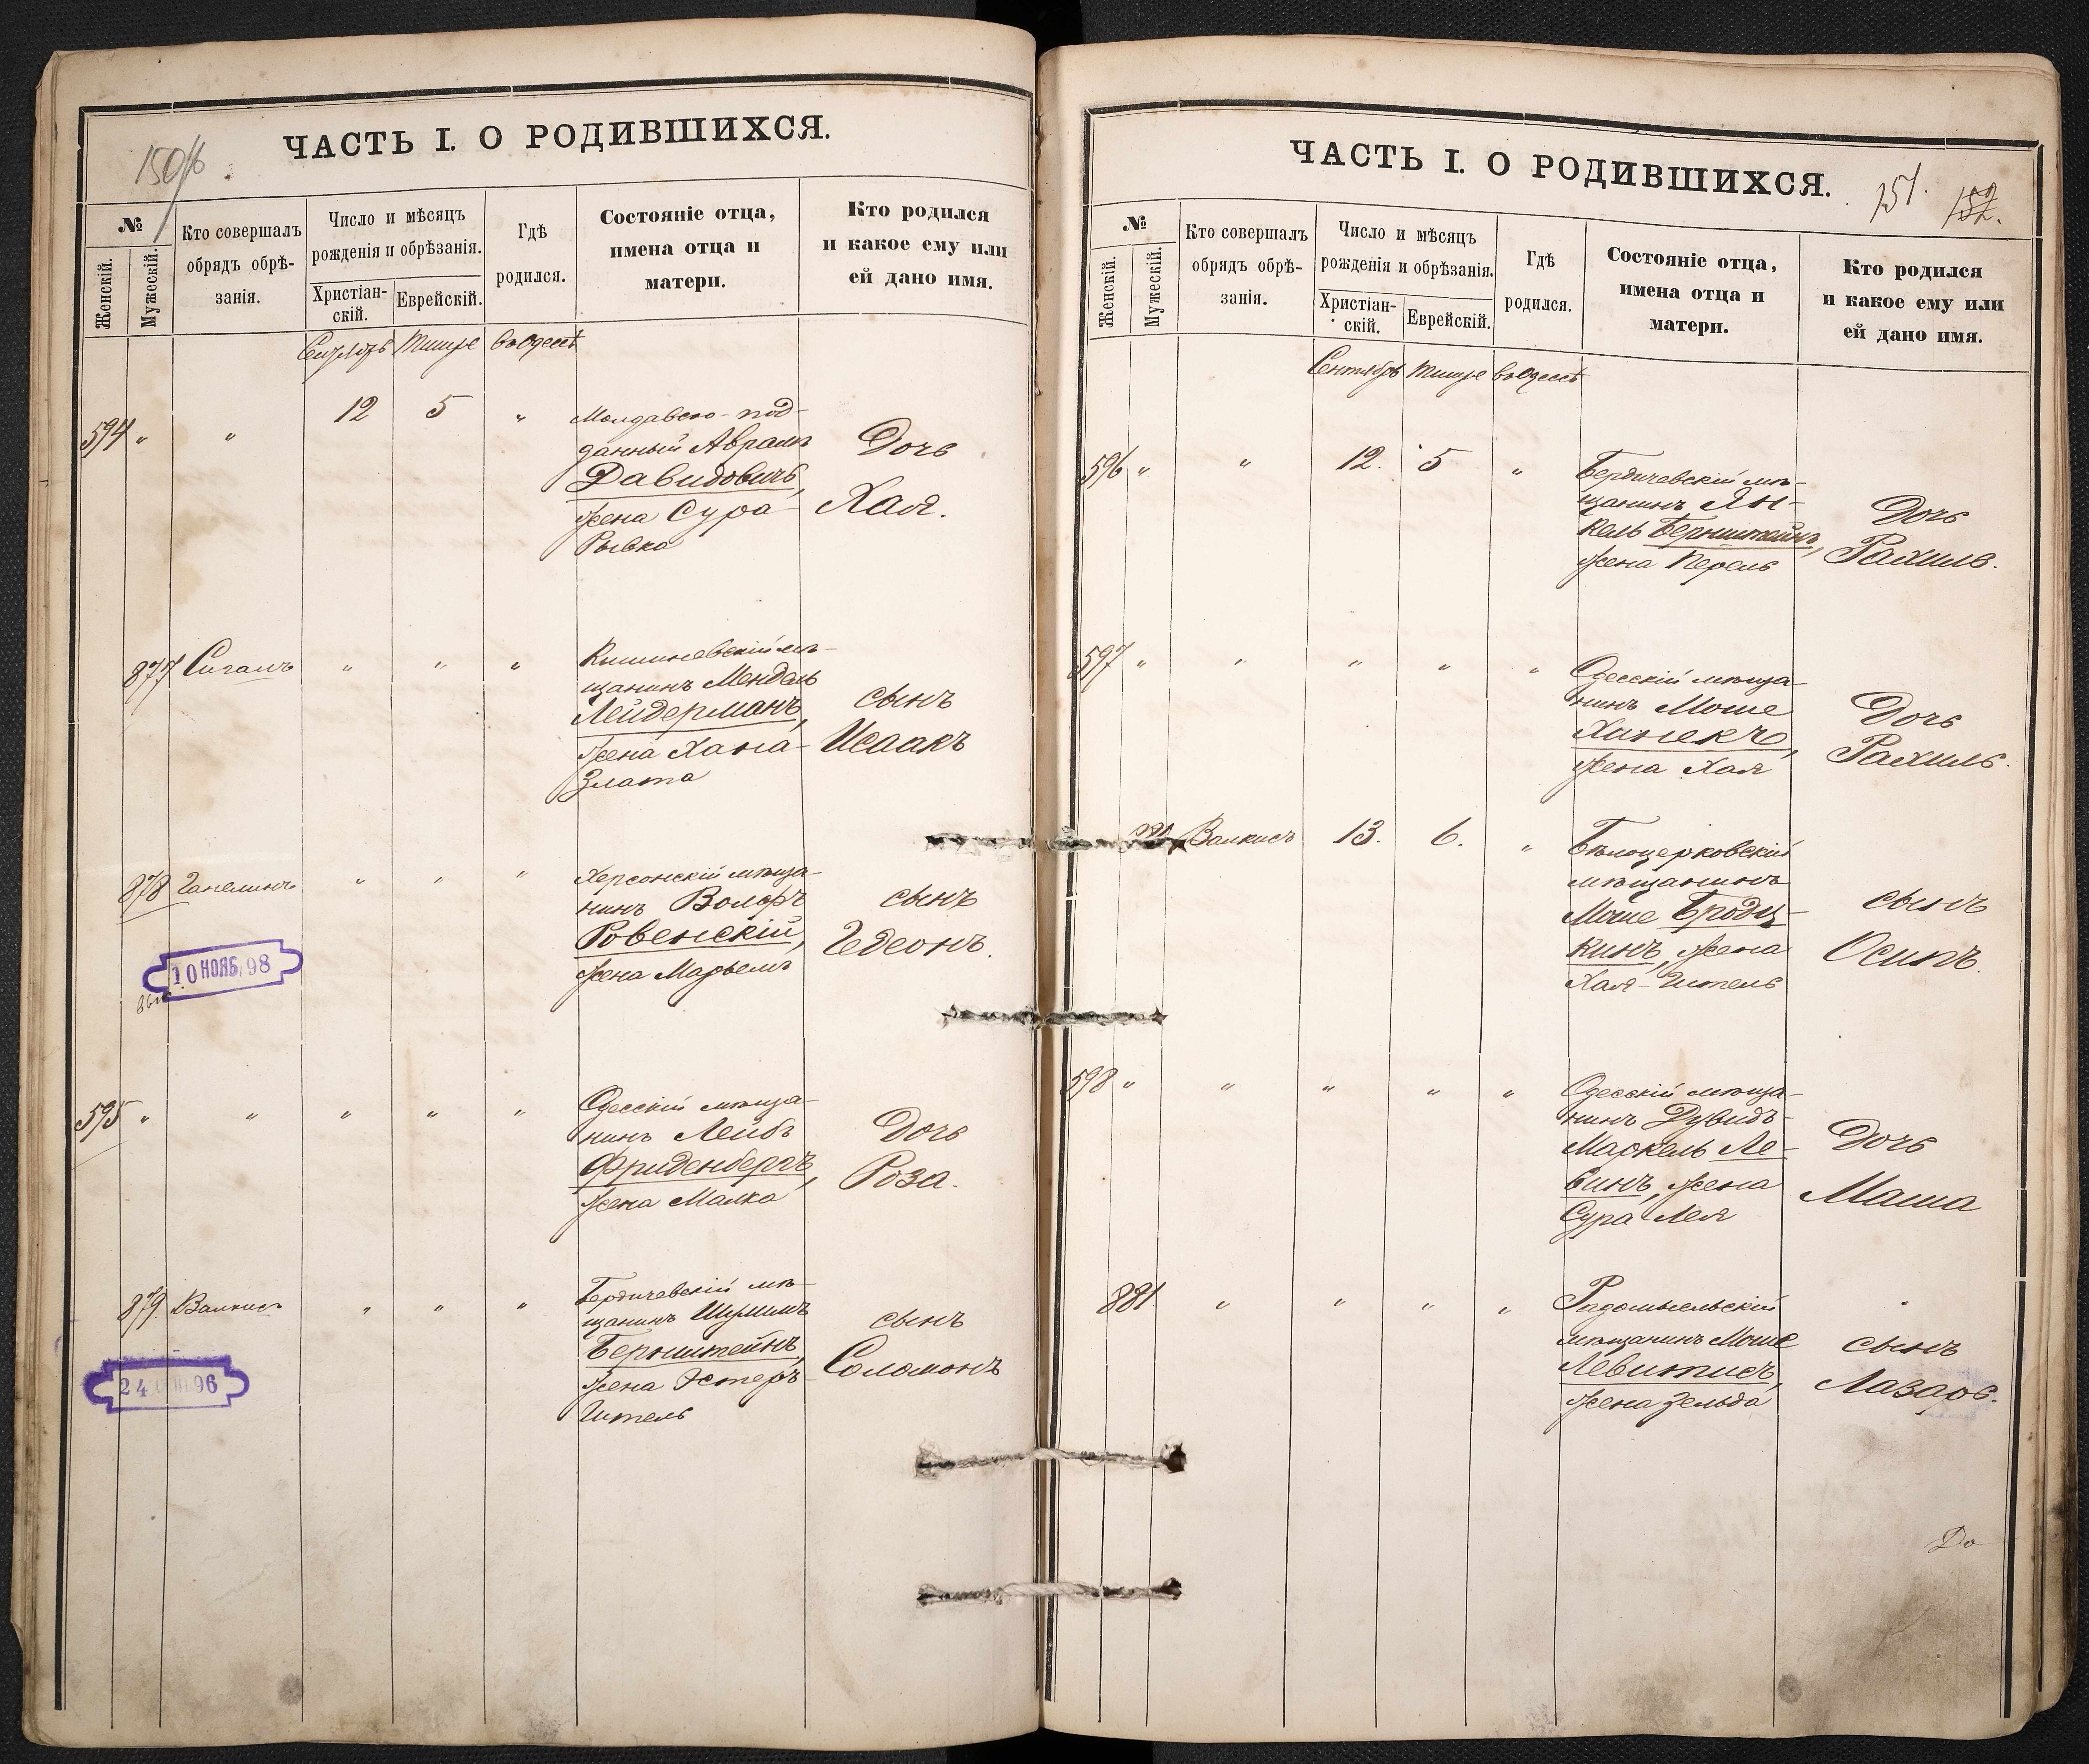 150/б
ЧАСТЬ I. О РОДИВШИХСЯ.
№
Женскій.
Мужескій.
Кто совершалъ
обрядъ обрѣ-
занія.
Число и мѣсяцъ
рожденія и обрѣзанія.
Христіан-
скій.
Еврейскій.
Гдѣ
родился.
Состояніе отца,
имена отца и
матери.
Кто родился
и какое ему или
ей дано имя.
Сентябрь Тишре въ Одессѣ
594 " " 12 5 " Молдавско-под-
данный Абрамъ
Давидовичъ,
жена Сура-
Рывка
Дочь
Хая.
877 Сигалъ " " " Кишиневскій мѣ-
щанинъ Мендель
Лейдерманъ,
жена Хана-
Злата
сынъ
Исаакъ
878 Ганелинъ " " " Херсонскій мѣща-
нинъ Вольфъ
Ровенскій,
жена Марьемъ
сынъ
Гедеонъ.
10 НОЯБ 98
595 " " " " " Одесскій мѣща-
нинъ Лейбъ
Фриденбергъ,
жена Малка
Дочь
Роза.
879. Валкисъ " " " Бердичевскій мѣ-
щанинъ Шулимъ
Бернштейнъ,
жена Эстеръ-
Гитель
сынъ
Соломонъ
24 96
ЧАСТЬ I. О РОДИВШИХСЯ.
151.
152.
№
Женскій.
Мужескій.
Кто совершалъ
обрядъ обрѣ-
занія.
Число и мѣсяцъ
рожденія и обрѣзанія.
Христіан-
скій.
Еврейскій.
Гдѣ
родился.
Состояніе отца,
имена отца и
матери.
Кто родился
и какое ему или
ей дано имя.
Сентябрь Тишре въ Одессѣ
596 " " 12. 5 " Бердичевскій мѣ-
щанинъ Ян-
кель Бернштейнъ,
жена Перель
Дочь
Рахиль.
597 " " " " " Одесскій мѣща-
нинъ Моше
Ханекъ,
жена Хая
Дочь
Рахиль.
880 Валкисъ 13. 6. " Бѣлоцерковскій
мѣщанинъ
Моше Бродц-
кинъ, жена
Хая-Гитель
сынъ
Осипъ.
598 " " " " " Одесскій мѣща-
нинъ Дувидъ-
Маркель Ле-
винъ, жена
Сура Лея
Дочь
Маша
881. " " " " Радомысльскій
мѣщанинъ Моше
Левитисъ,
жена Зельда
сынъ
Лазарь.
До